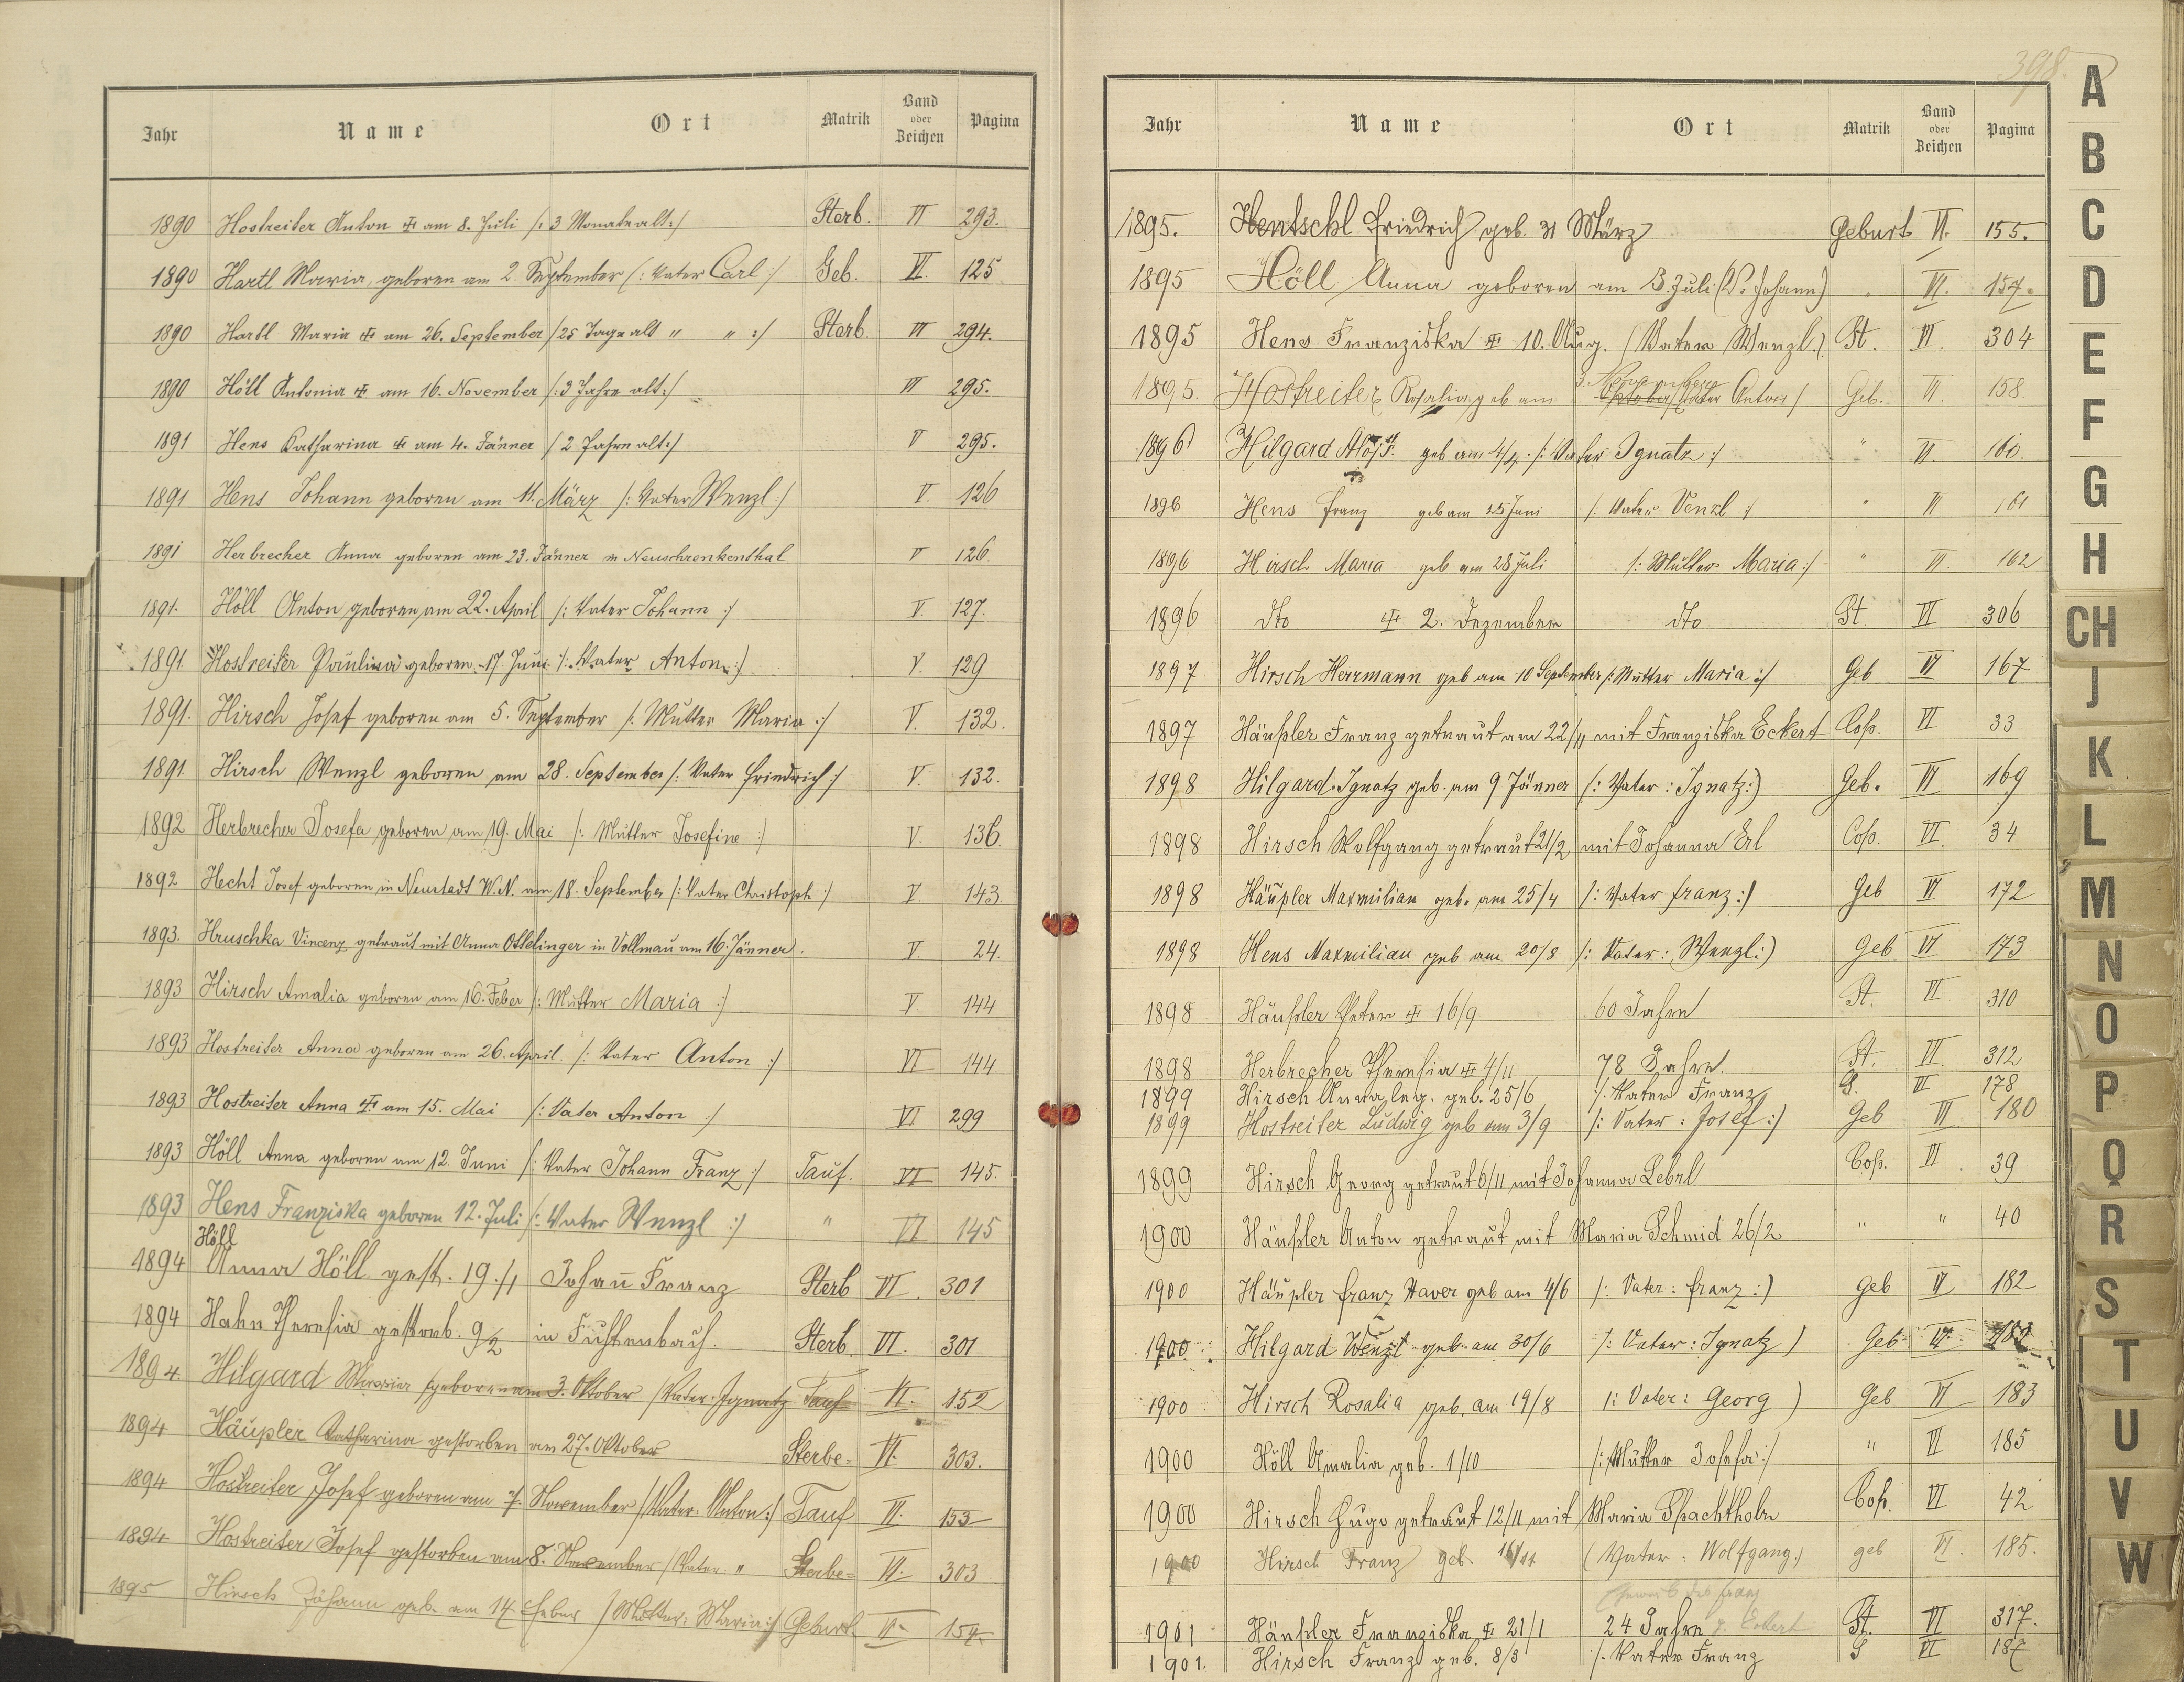 Jahr Name Ort Matrik Band oder Zeichen Pagina
1890 Hostreiter Anton ✠ am 8. Juli /: 3 Monate alt :/ Sterb. VI 293.
1890 Hartl Maria, geboren am 2. September /: Vater Carl :/ Geb. VI. 125
1890 Hartl Maria ✠ am 26. September /25 Tage alt " " :/ Sterb. VI 294.
1890 Höll Antonia ✠ am 16. November /: 3 Jahre alt :/ VI 295.
1891 Hens Katharina ✠ am 4. Jänner / 2 Jahre alt :/ V 295.
1891 Hens Johann geboren am 11. März /: Vater Wenzl :/ V. 126
1891 Herbrecher Anna geboren am 23. Jänner in Neuschrenkenthal V 126.
1891. Höll Anton geboren am 22. April /: Vater Johann :/ V. 127.
1891 Hostreiter Paulina geboren 17 Juni /: Vater Anton :/ V. 129
1891. Hirsch Josef geboren am 5. September /: Mutter Maria :/ V. 132.
1891. Hirsch Wenzl geboren am 28. September /: Vater Friedrich :/ V. 132.
1892 Herbrecher Josefa geboren am 19. Mai /: Mutter Josefine :/ V. 136.
1892 Hecht Josef geboren in Neustadt W.N. am 18. September /: Vater Christoph :/ V. 143.
1893. Hruschka Vincenz getraut mit Anna Ottelinger in Vollmau am 16. Jänner. V. 24.
1893 Hirsch Amalia geboren am 16. Feber /: Mutter Maria :/ V 144
1893 Hostreiter Anna geboren am 26. April /: Vater Anton :/ VI 144
1893 Hostreiter Anna ✠ am 15. Mai /: Vater Anton :/ VI 299
1893 Höll Anna geboren am 12. Juni /: Vater Johann Franz :/ Tauf. VI 145.
1893 Hens Franziska geboren 12. Juli /: Vater Wenzl :/ " VI 145
Höll
1894 Anna Höll gest. 19./1 Johann Franz Sterb VI. 301
1894 Hahn Theresia gestorb. 9/2 in Fichtenbach. Sterb. VI. 301
1894 Hilgard Maria geboren am 3. Oktober /Vater: Ignatz Tauf VI. 152
1894 Häupler Katharina gestorben am 27. Oktober Sterbe= VI. 303.
1894 Hostreiter Josef geboren am 7. November /Vater: Anton :/ Tauf VI. 153
1894 Hostreiter Josef gestorben am 8. November /Vater " Sterbe= VI. 303
1895 Hirsch Johann geb. am 14 Feber /Mutter: Maria :/ Geburt VI. 154.
398.
Jahr Name Ort Matrik Band oder Zeichen Pagina
1895. Hentschl Friedrich geb. 31 März Geburt VI. 155.
1895 Höll Anna geboren am 3. Juli (V. Johann) " VI. 157.
1895 Hens Franziska ✠ 10. Aug. /Vater Wenzl.) St. VI. 304
3. November
1895. Hostreiter Rosalia geb am Oktober /Vater Anton/ Geb. VI. 158.
1896 Hilgard geb am 4/4. /: Vater Ignatz :/ " VI. 160.
1896 Hens Franz geb am 25 Juni /: Vater Venzl :/ " VI 161
1896 Hirsch Maria geb am 28 Juli /: Mutter Maria :/ " VI. 162
1896 dto ✠ 2. Dezember dto St. VI 306
1897 Hirsch Herrmann geb am 10 September /: Mutter Maria :/ Geb VI 167
1897 Häußler Franz getraut am 22/11 mit Franziska Eckert Cop. VI 33
1898 Hilgard Ignatz geb. am 9 Jänner (: Vater : Ignatz:) Geb. VI 169
1898 Hirsch Wolfgang getraut 21/2 mit Johanna Erl Cop. VI. 34
1898 Häupler Maxmilian geb. am 25/4 /: Vater Franz :/ Geb VI 172
1898 Hens Maxmilian geb am 20/8 /: Vater: Wenzl:) Geb VI 173
1898 Häußler Peter ✠ 16/9 60 Jahre St. VI. 310
1898 Herbrecher Theresia ✠ 4/11 78 Jahre. St. VI. 312
1899 Hirsch Anna leg. geb. 25/6 /: Vater Franz G. VI 178
1899 Hostreiter Ludwig geb am 3/9 /: Vater : Josef :/ Geb VI. 180
1899 Hirsch Georg getraut 6/11 mit Johanna Lebrl Cop. VI. 39
1900 Häußler Anton getraut mit Maria Schmid 26/2 " " 40
1900 Häupler Franz Xaver geb am 4/6 /: Vater : Franz :) Geb VI 182
1900 Hilgard Wenzl geb. am 30/6 /: Vater : Ignatz ) Geb VI
1900 Hirsch Rosalia geb. am 19/8 /: Vater : Georg ) Geb VI 183
1900 Höll Amalia geb. 1/10 /: Mutter Josefa :/ " VI 185
1900 Hirsch Hugo getraut 12/11 mit Maria Spachtholz Cop. VI 42
1900 Hirsch Franz geb. (Vater : Wolfgang.) geb VI. 185.
des Franz
1901 Häußler Franziska ✠ 21/1 24 Jahre g. Eckert St. VI 317.
1901. Hirsch Franz geb. 8/3 /: Vater Franz G VI 187
A
B
C
D
E
F
G
H
CH
J
K
L
M
N
O
P
Q
R
S
T
U
V
W